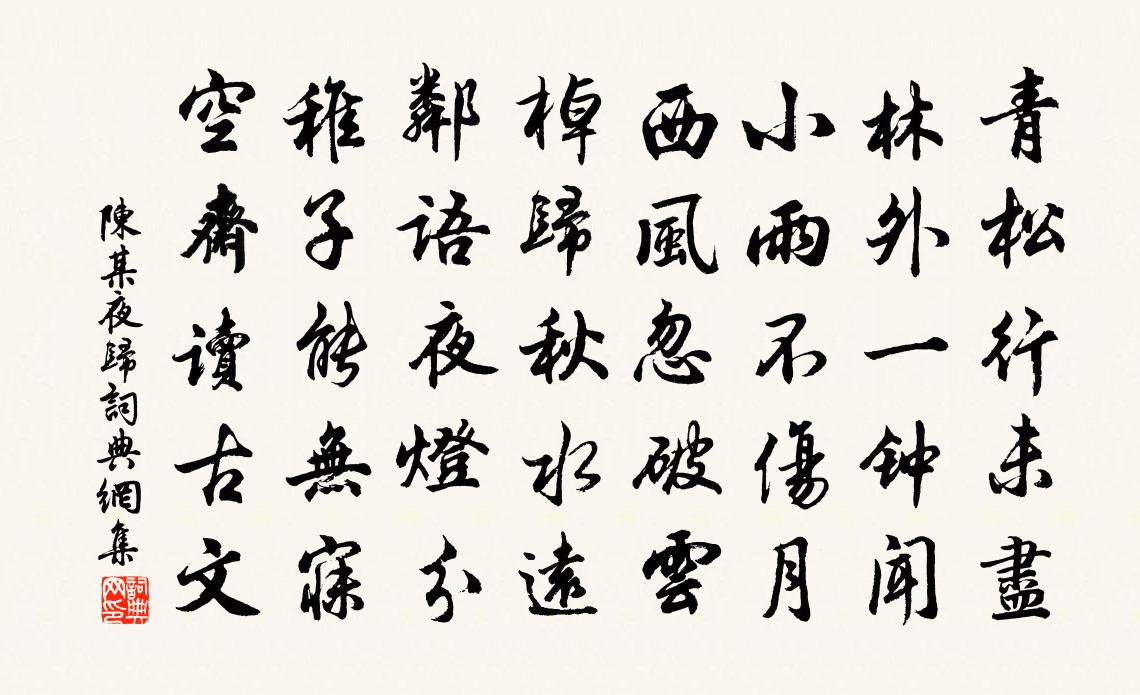 青松行未盡
林外一钟闻
小雨不傷月
西風忽破雲
棹歸秋水遠
鄰語夜燈分
稚子能無寐
空齋讀古文
陳某夜歸詞典網集
詞典网印